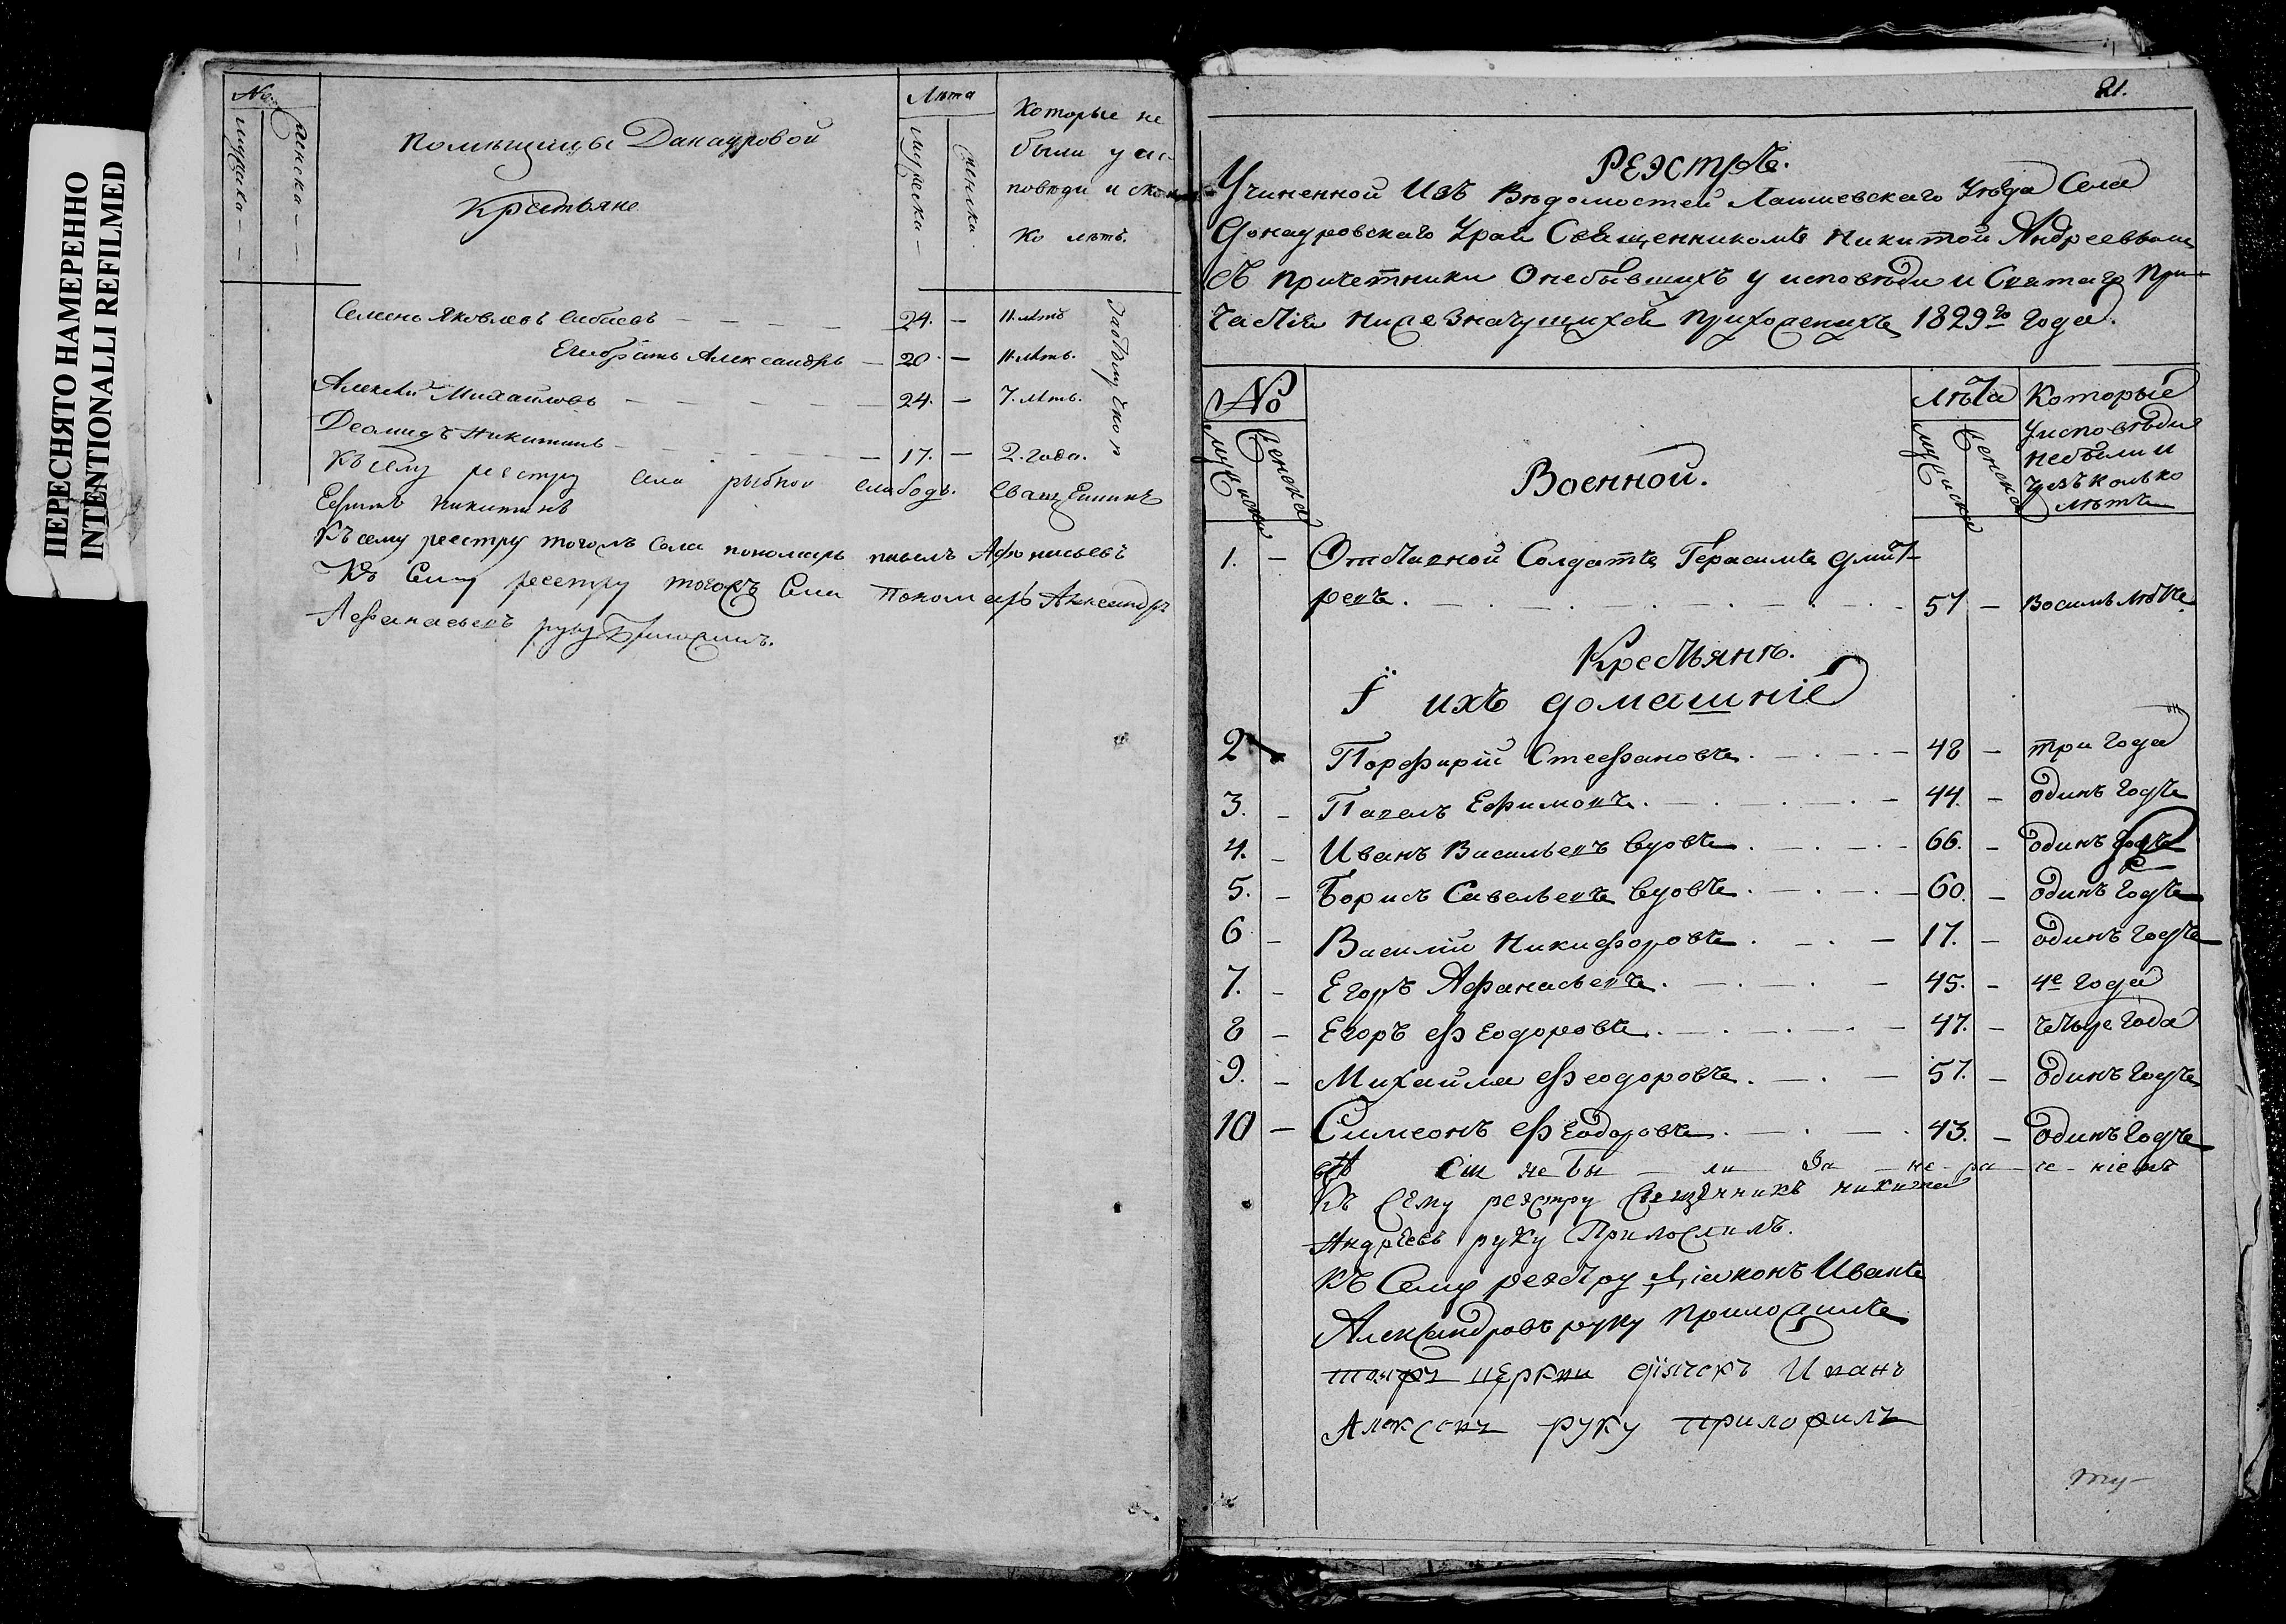 ПЕРЕСНЯТО НАМЕРЕННО
INTENTIONALLI REFILMED
№
мужска
женска
помѣщицы Данауровой
Крестьяне
Лѣта
мужска
женска
Которые не
были у ис-
повѣди и сколь-
ко лѣтъ.
Семенъ Яковлевъ — 24. — 11. лѣтъ
Его братъ Александръ — 20 — 11. лѣтъ.
Алексѣй Михайловъ — 24. — 7. лѣтъ.
Деомидъ Никитинъ — 17. — 2. года.
Къ сему реестру села рыбной слободы. Священникъ
Ефимъ Никитинъ
Къ сему реестру тогожъ села пономарь павелъ
Къ Сему реестру тогожъ Села Пономарь Александръ
Афанасьевъ руку Приложилъ.
21.
РЕЭСТРЪ.
Учиненной Изъ Вѣдомостей Лаишевскаго Уѣзда Села
Донауровскаго Урай Священникомъ Никитой Андреевымъ
съ причетники О небывшихъ у исповѣди и Святаго При-
частія нижезначущихся прихожанхъ 1829го года.
№
мужска
женска
Военной.
Лѣта
мужска
женска
Которые
у исповѣди
небыли и
сколько
лѣтъ
1. — Отставной Солдатъ Герасимъ Дмит-
ревъ. — 57 — Восимь лѣтъ
Крестьянъ.
І ихъ домашніе
2 Порфирій Стефановъ. — 48 — три года
3. — Павелъ Ефимовъ. — 44. — одинъ годъ
4. — Иванъ Васильевъ вдовъ — 66. — одинъ годъ
5. — Борисъ Савельевъ вдовъ — 60. — одинъ годъ
6 — Василій Никифоровъ. — 17. — одинъ годъ
7. — Егоръ Афанасьевъ. — 45. — 4е года
8 — Егоръ Феодоровъ. — 47. — четыре года
9. — Михайла Феодоровъ. — 57. — одинъ годъ
10 — Симеонъ Феодоровъ. — 43. — одинъ годъ
сіи не бы — ли за — не-ра-че-ніемъ
Къ сему реэстру Священникъ никита
Андреевъ руку Приложилъ.
Къ Сему реэстру Діаконъ Иванъ
Александровъ руку приложилъ
тояжъ церкви дьячекъ Иванъ
Алексевъ руку приложилъ